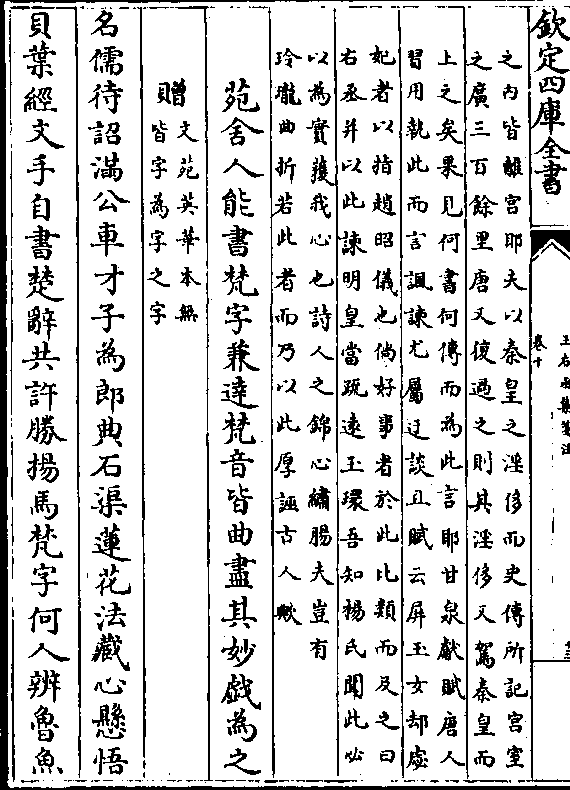 欽定四庫全書
王右丞集箋注
卷十
之内皆離宮耶夫以秦皇之淫侈而史傳所記宮室
之廣三百餘里唐又復過之則其淫侈又駕秦皇而
上之矣果見何書何傳而為此言耶甘泉獻賦唐人
習用執此而言諷諫尤屬迂談且賦云屏玉女却虙
妃者以指趙昭儀也倘好事者於此比類而及之曰
右丞并以此諫明皇當疏遠玉環吾知楊氏聞此必
以為實獲我心也詩人之錦心繡腸夫豈有
玲瓏曲折若此者而乃以此厚誣古人歟
苑舍人能書梵字兼達梵音皆曲盡其妙戲為之
贈
文苑英華本無
皆字為字之字
名儒待詔滿公車才子為郎典石渠蓮花法藏心懸悟
貝葉經文手自書楚辭共許勝揚馬梵字何人辨魯魚